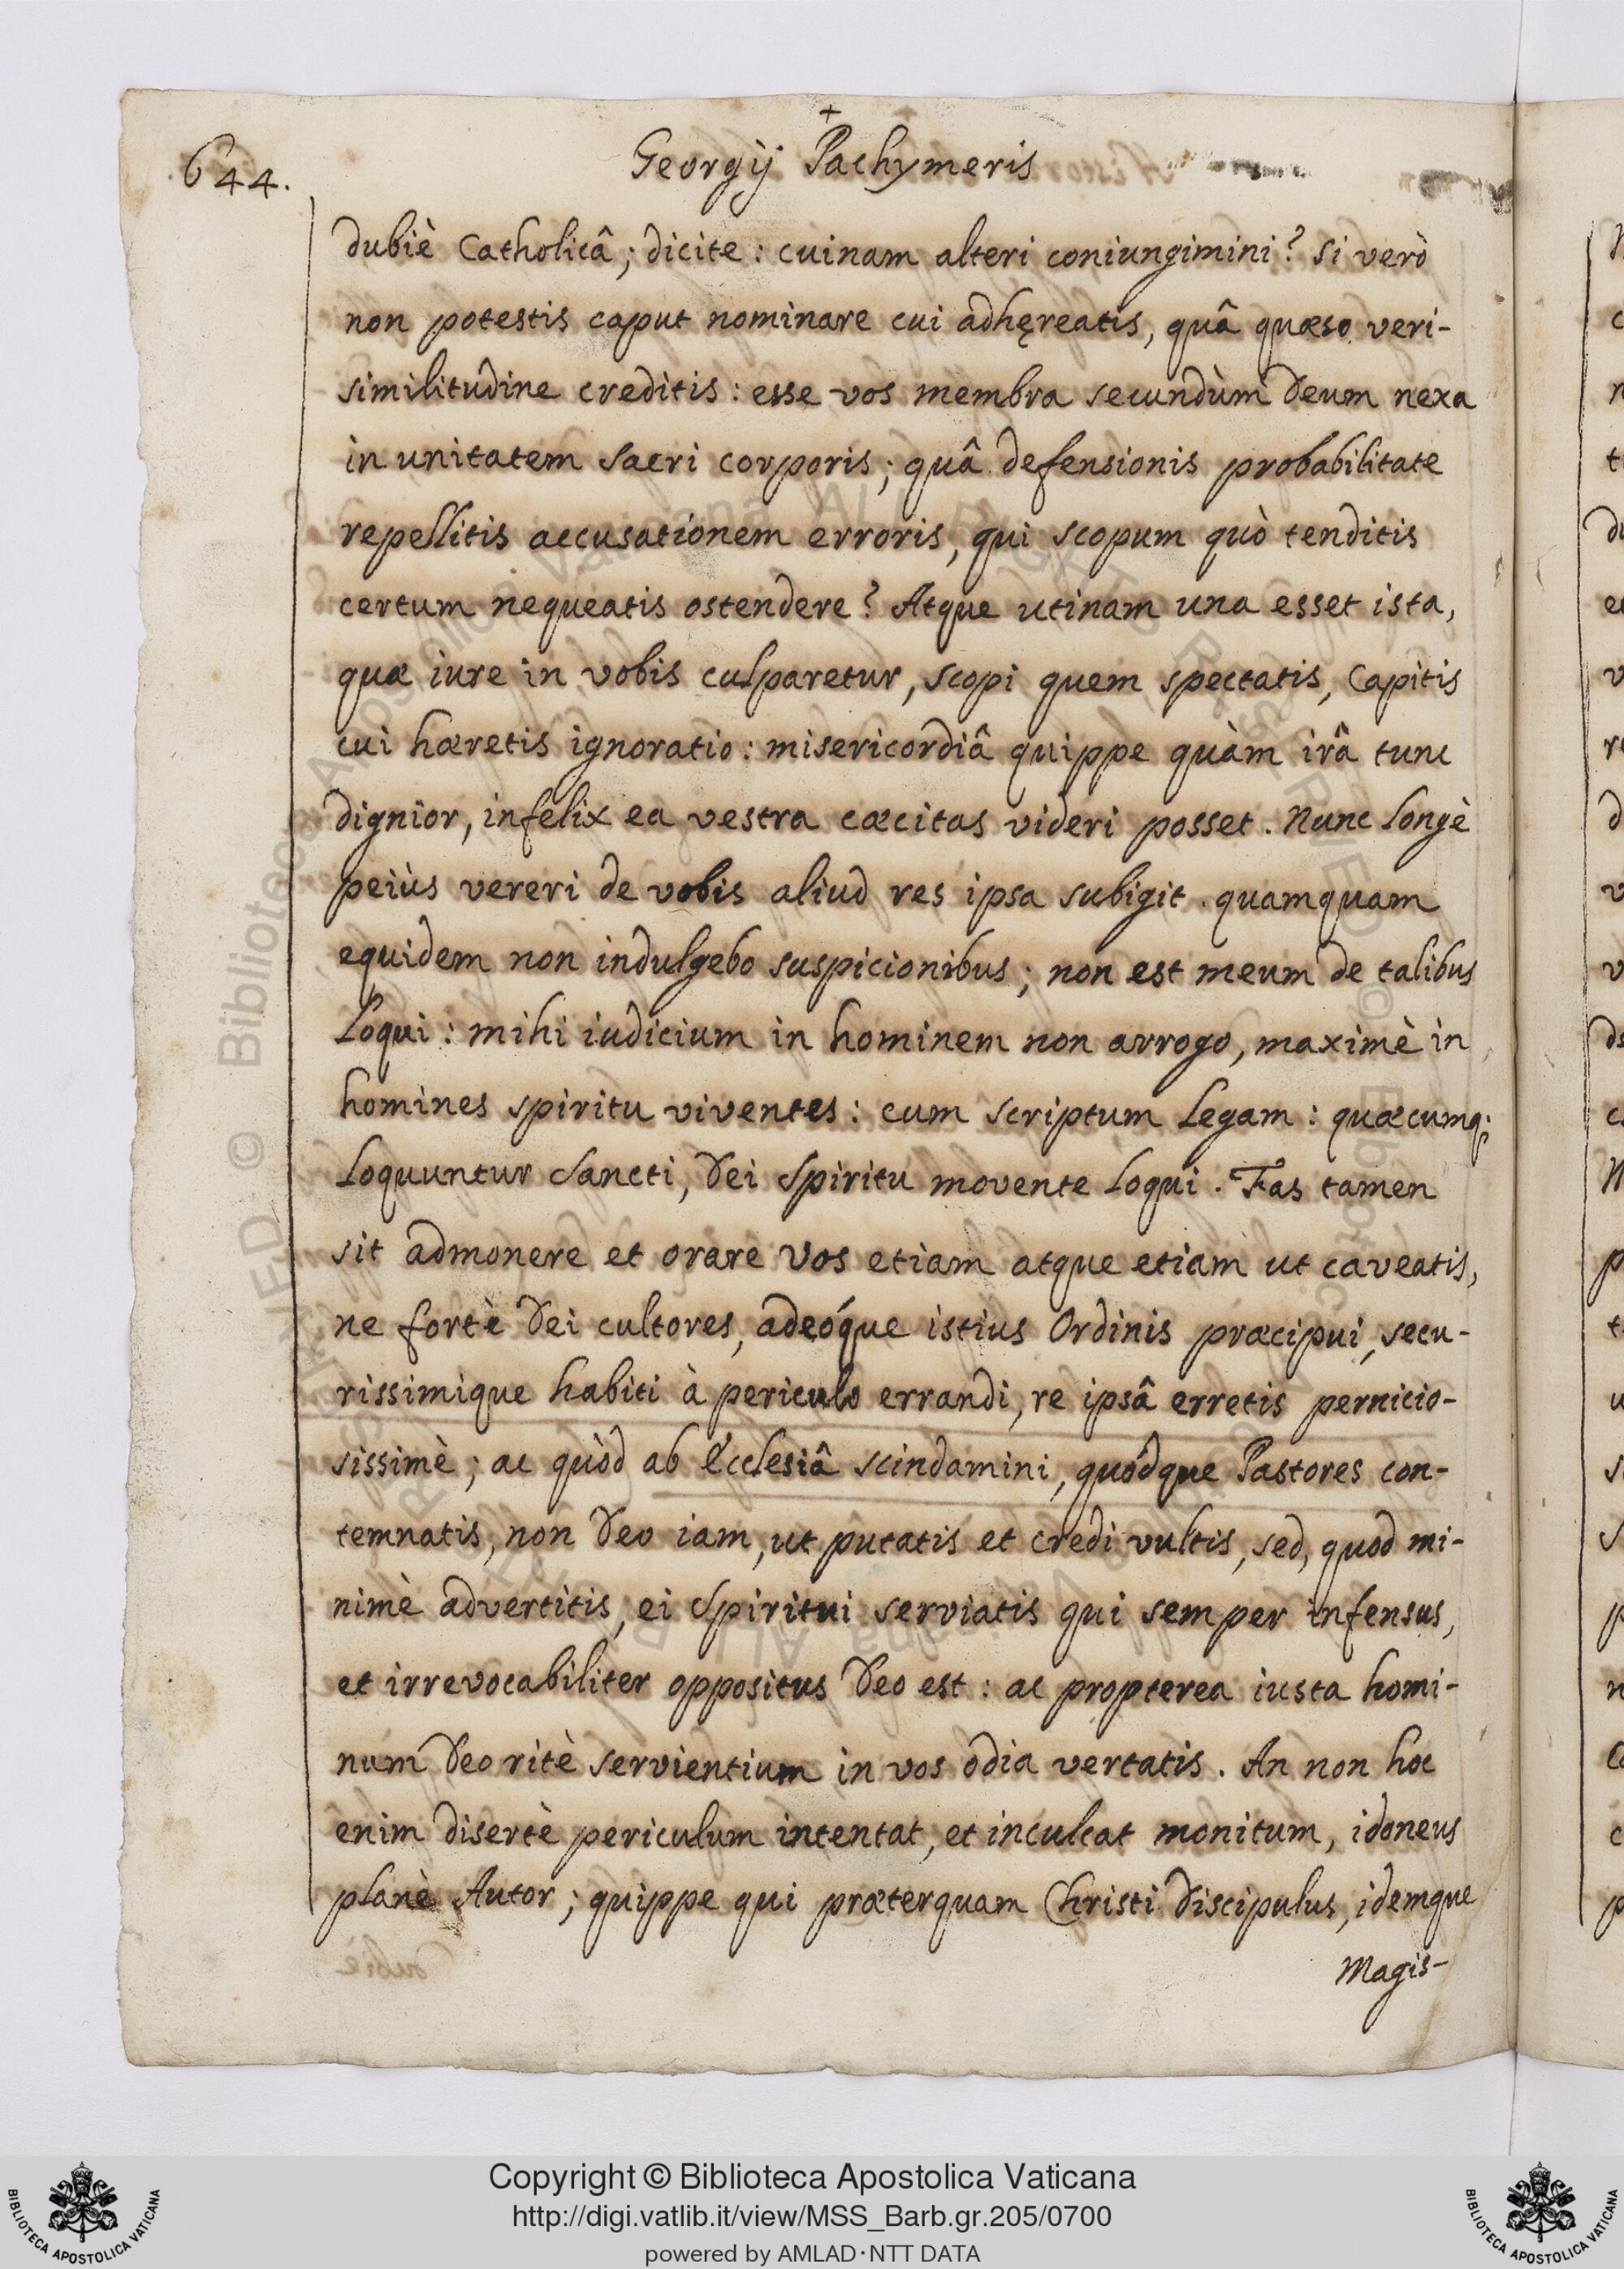 644.
Georgij Pachymeris
dubiè Catholicâ; dicite: cuinam alteri coniungimini? Si verò
non potestis caput nominare cui adhęreatis, quâ quæso veri-
similitudine creditis: esse vos membra secundùm Deum nexa
in unitatem Sacri corporis; quâ defensionis probabilitate
repellitis accusationem erroris, qui scopum quò tenditis
certum nequeatis ostendere? Atque utinam una esset ista,
quæ iure in vobis culparetur, scopi quem spectatis, Capitis
cui hæretis ignoratio: misericordiâ quippe quàm irâ tunc
dignior, infelix ea vestra cæcitas videri posset. Nunc longè
peiùs vereri de vobis aliud res ipsa subigit. quamquam
equidem non indulgebo suspicionibus; non est meum de talibus
loqui: mihi iudicium in hominem non arrogo, maximè in
homines spiritu viventes: cum scriptum legam: quæcumq;
loquuntur Sancti, Dei Spiritu movente loqui. Fas tamen
sit admonere et orare vos etiam atque etiam ut caveatis,
ne fortè Dei cultores, adeóque istius Ordinis præcipui, secu-
rissimique habiti à periculo errandi, re ipsâ erretis pernicio-
sissimè; ac quòd ab Ecclesiâ scindamini, quódque Pastores con-
temnatis, non Deo iam, ut putatis et credi vultis, sed, quod mi-
nimè advertitis, ei Spiritui serviatis qui semper infensus,
et irrevocabiliter oppositus Deo est: ac propterea iusta homi-
num Deo ritè servientium in vos odia vertatis. An non hoc
enim disertè periculum intentat, et inculcat monitum, idoneus
planè Autor; quippe qui præterquam Christi Discipulus, idemque
Magis-
Copyright © Biblioteca Apostolica Vaticana
http://digi.vatlib.it/view/MSS_Barb.gr.205/0700
powered by AMLAD·NTT DATA
BIBLIOTECA APOSTOLICA VATICANA
BIBLIOTECA APOSTOLICA VATICANA